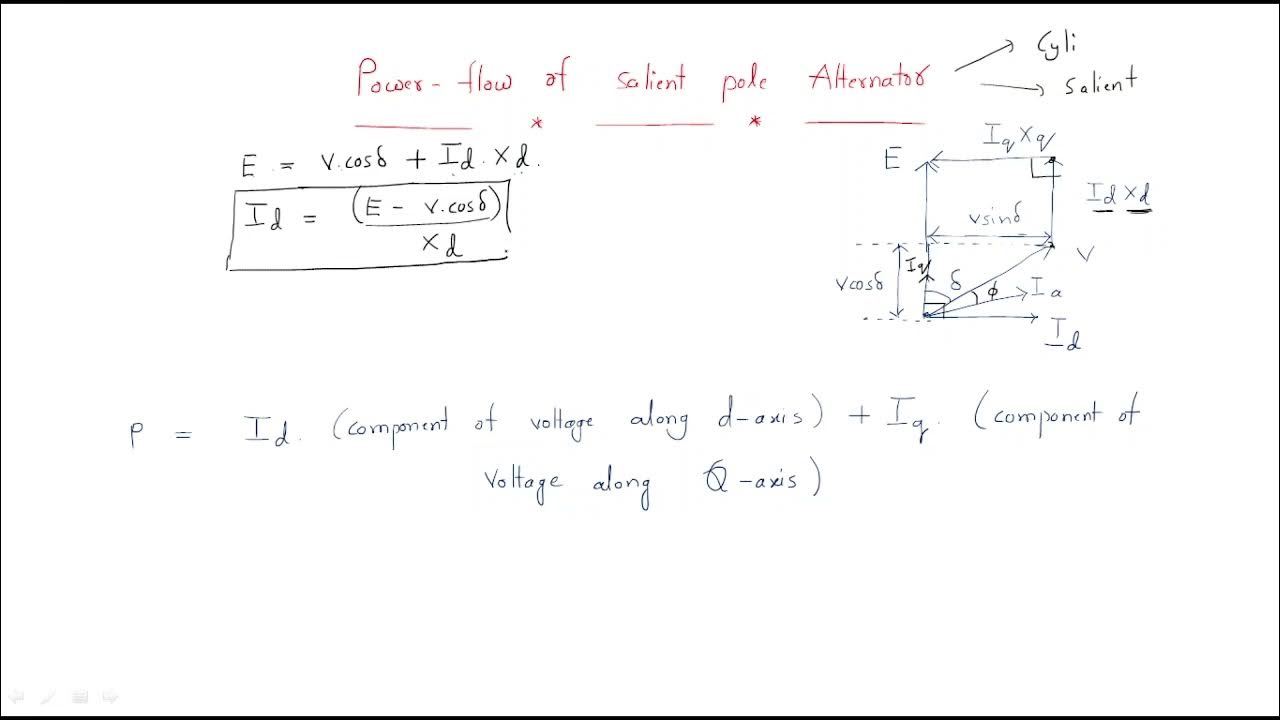 Power-flow of salient pole Alternator
Cyli
Salient
E = V.cosδ + Id.Xd.
Id = (E - V.cosδ)
Xd
Iq Xq
E
Id Xd
Vsinδ
V
Iq
Vcosδ
δ
ϕ
Ia
Id
P = Id. (component of voltage along d-axis) + Iq. (component of
voltage along Q-axis)